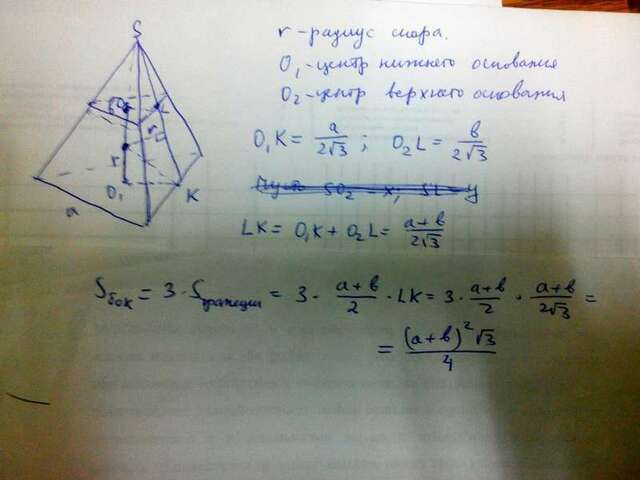 S
r - радиус шара.
O₁ - центр нижнего основания
O₂ - центр верхнего основания
O₁K = a/(2√3) ; O₂L = в/(2√3)
LK = O₁K + O₂L = (a+в)/(2√3)
r
r
O₁
K
a
в
Sбок = 3 · Sтрапеции = 3 · (a+в)/2 · LK = 3 · (a+в)/2 · (a+в)/(2√3) =
= (a+в)²√3/4